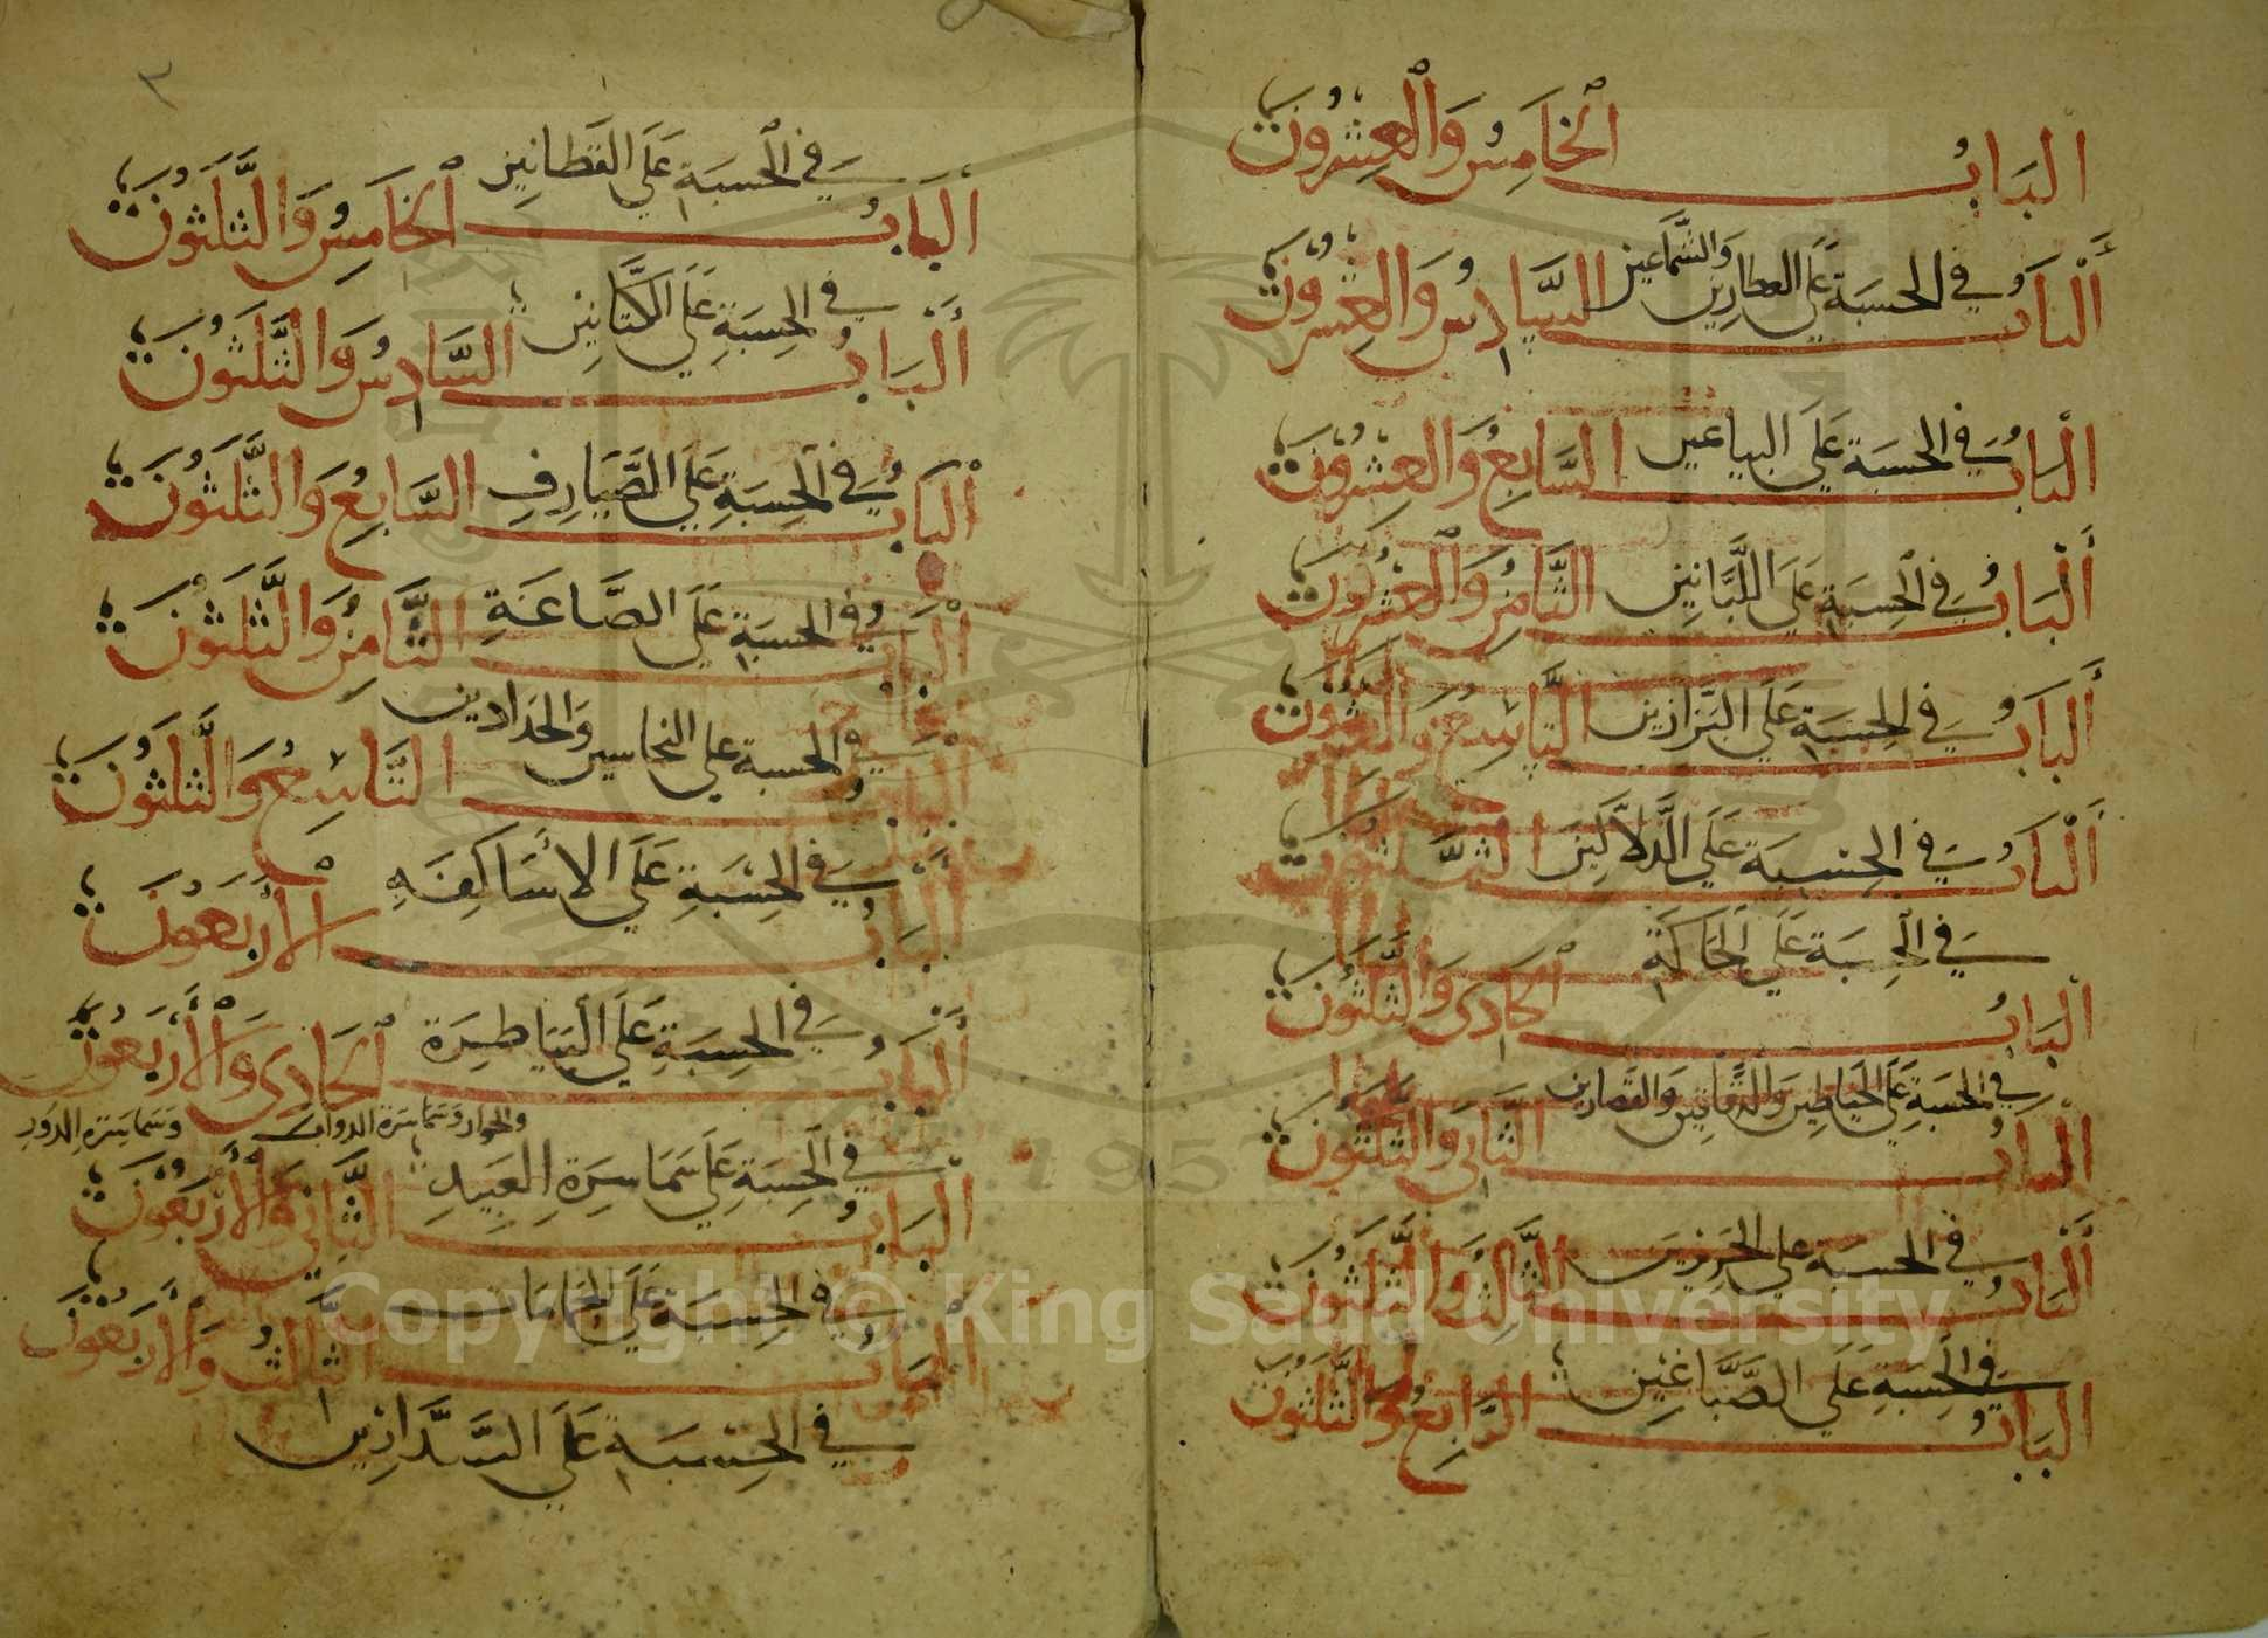 البَابُ الخَامِسُ وَالْعِشْرُونَ
في الحسبَة عَلَى العطارين وَالشَّمَّاعين
أَلْبَابُ السَّادِسُ وَالْعِشْرُونَ
في الحسبَة عَلَى البياعين
الْبَابُ السَّابِعُ وَالعشْرُونَ
في الْحِسبَةِ عَلَى اللَّبَّانِين
أَلْبَابُ الثَّامِنُ وَالْعشرُونَ
في الحِسبَةِ عَلَى البَزازين
أَلبَابُ التَّاسِعُ وَالعشرُونَ
في الحِسْبَة عَلَى الدَّلاَّلِينَ
أَلْبَابُ الثَّلَثُونَ
في الْحِسبَة عَلَى الحَاكَةِ
الْبَابُ الْحَادِى وَالثَّلثُونَ
في الحسبَة عَلَى الخَياطِين وَالرَّفَّائين وَالقَصارين
البابُ الثَّانِى وَالثَّلثُونَ
في الحسبَة على الحَرِيرِيين
أَلْبَابُ الثَّالِثُ وَالثَّلَثُونَ
في الْحِسبَةِ عَلَى الصَّبَّاغِين
البَابُ الرَّابِعُ وَالثَّلَثُونَ
٣
في الْحسبَةِ عَلَى القَطانِين
البَابُ الْخَامِسُ وَالثَّلَثُونَ
في الحِسبَةِ عَلَى الكَتَّانِين
أَلْبَابُ السَّادِسُ وَالثَّلَثُونَ
في الحِسبَةِ عَلَى الصَّيَارِفِ
الْبَابُ السَّابِعُ وَالثَّلَثُونَ
في الحسبَةِ عَلَى الصَّاغَةِ
الْبَابُ الثَّامِنُ وَالثَّلَثُونَ
في الحسبة على النحاسين وَالحَدادين
البابُ التَّاسِعُ وَالثَّلثُونَ
في الحِسْبَةِ عَلَى الأَسَاكِفَه
أَلْبَابُ الأَرْبَعُونَ
في الحِسبَةِ عَلَى البَيَاطِرَة
أَلْبَابُ الْحَادِى وَالْأَرْبَعُونَ
في الْحِسبَةِ عَلَى سَمَاسِرَةِ العَبِيدِ والجوار وَسَمَاسَرَة الدواب وَسَمَاسَرَة الدور
البَابُ الثَّانِي وَالْأَرْبَعُونَ
في الحِسبَة عَلَى الحَمامَات
البَابُ الثالثُ وَالأَرْبَعُونَ
في الحِسْبَةِ عَلَى السَّدَّارِين
Copyright © King Saud University
1957